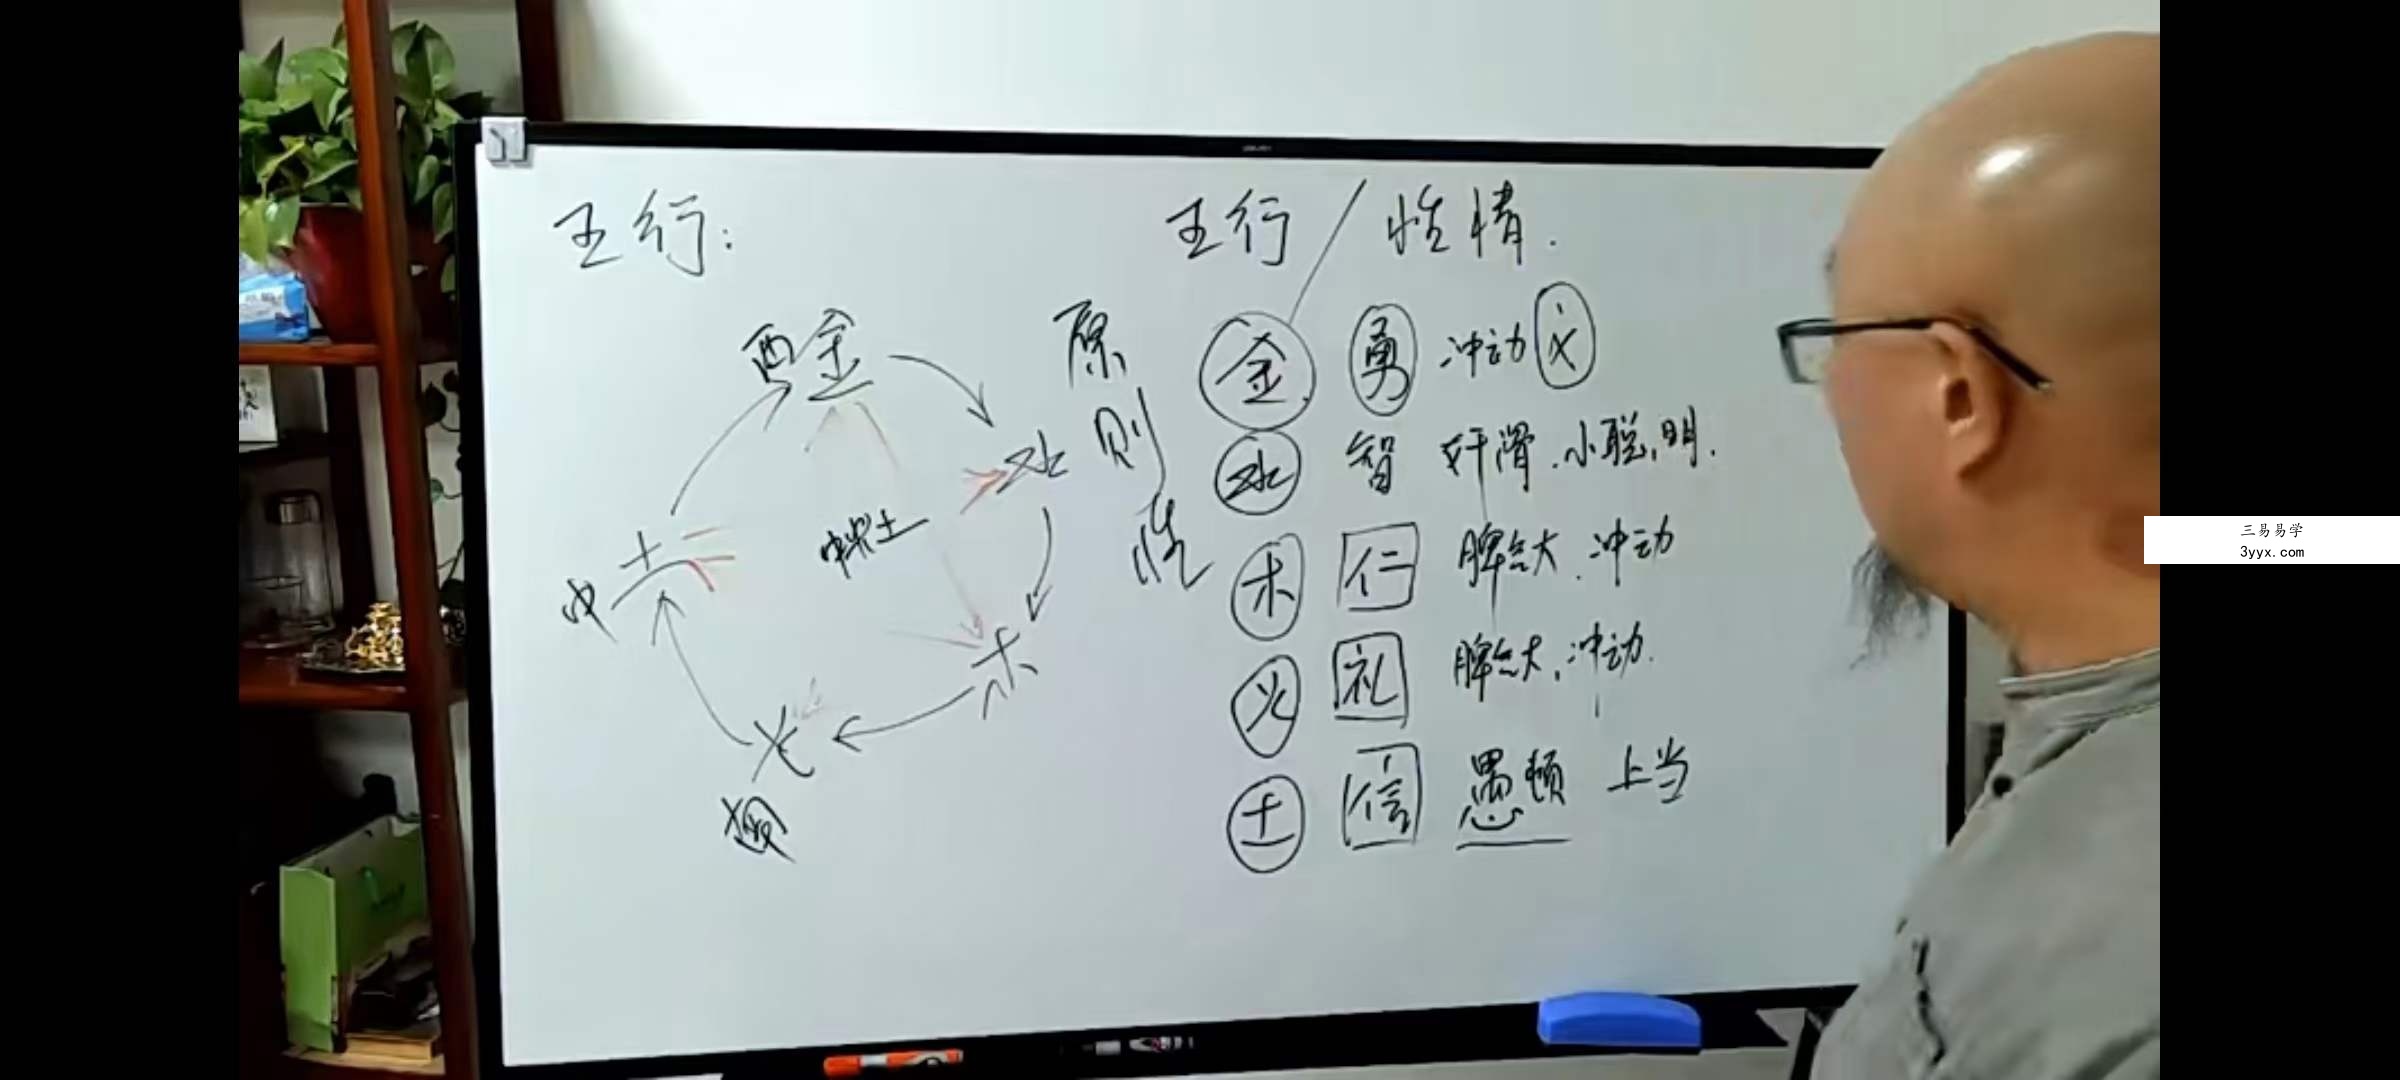 五行：
五行 / 性情.
西金
原则性
水
中央土
中 土
木
火
南
金 勇 冲动 义
水 智 奸滑.小聪明.
木 仁 脾气大.冲动
火 礼 脾气大,冲动.
土 信 愚顿 上当
三易易学
3yyx.com